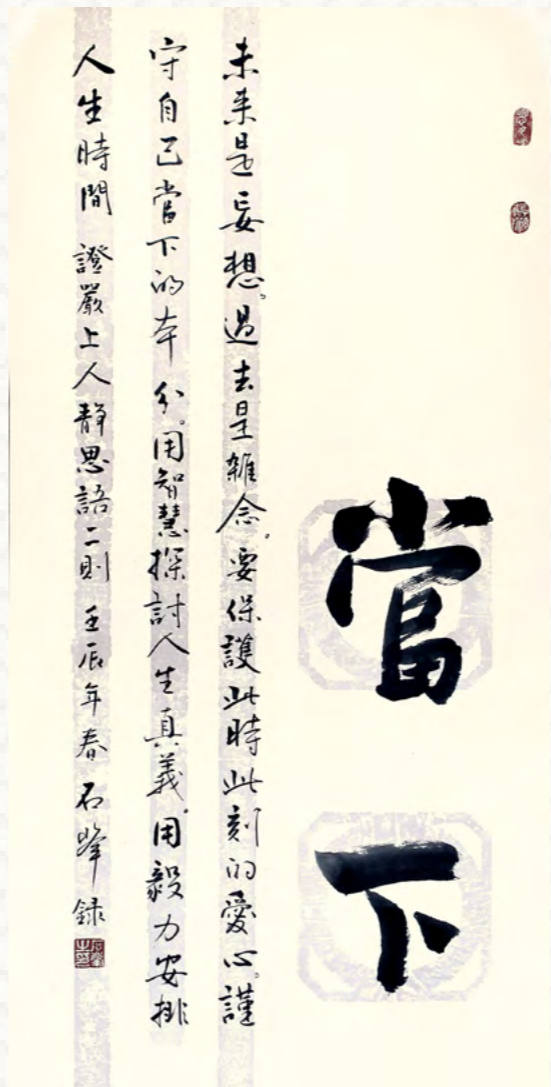 當下
未来是妄想。過去是雜念。要保護此時此刻的愛心。謹
守自己當下的本分。用智慧探討人生真義。用毅力安排
人生時間 證嚴上人靜思語二則 壬辰年春 石峰錄